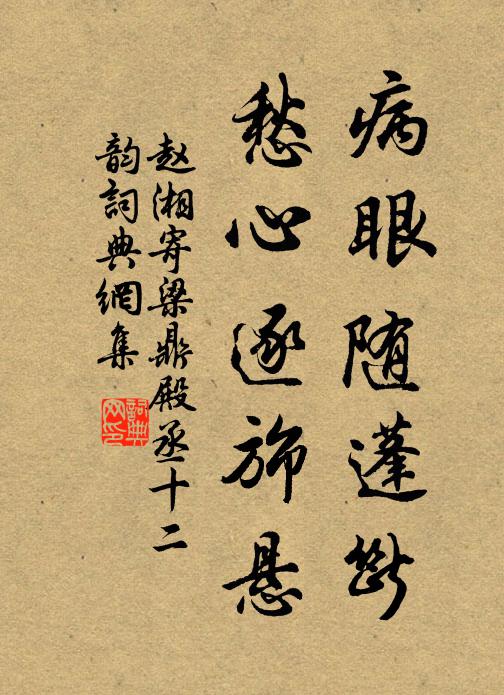 病眼随蓬断
愁心逐旆悬
赵湘寄梁鼎殿丞十二
韵詞典網集
詞典网印